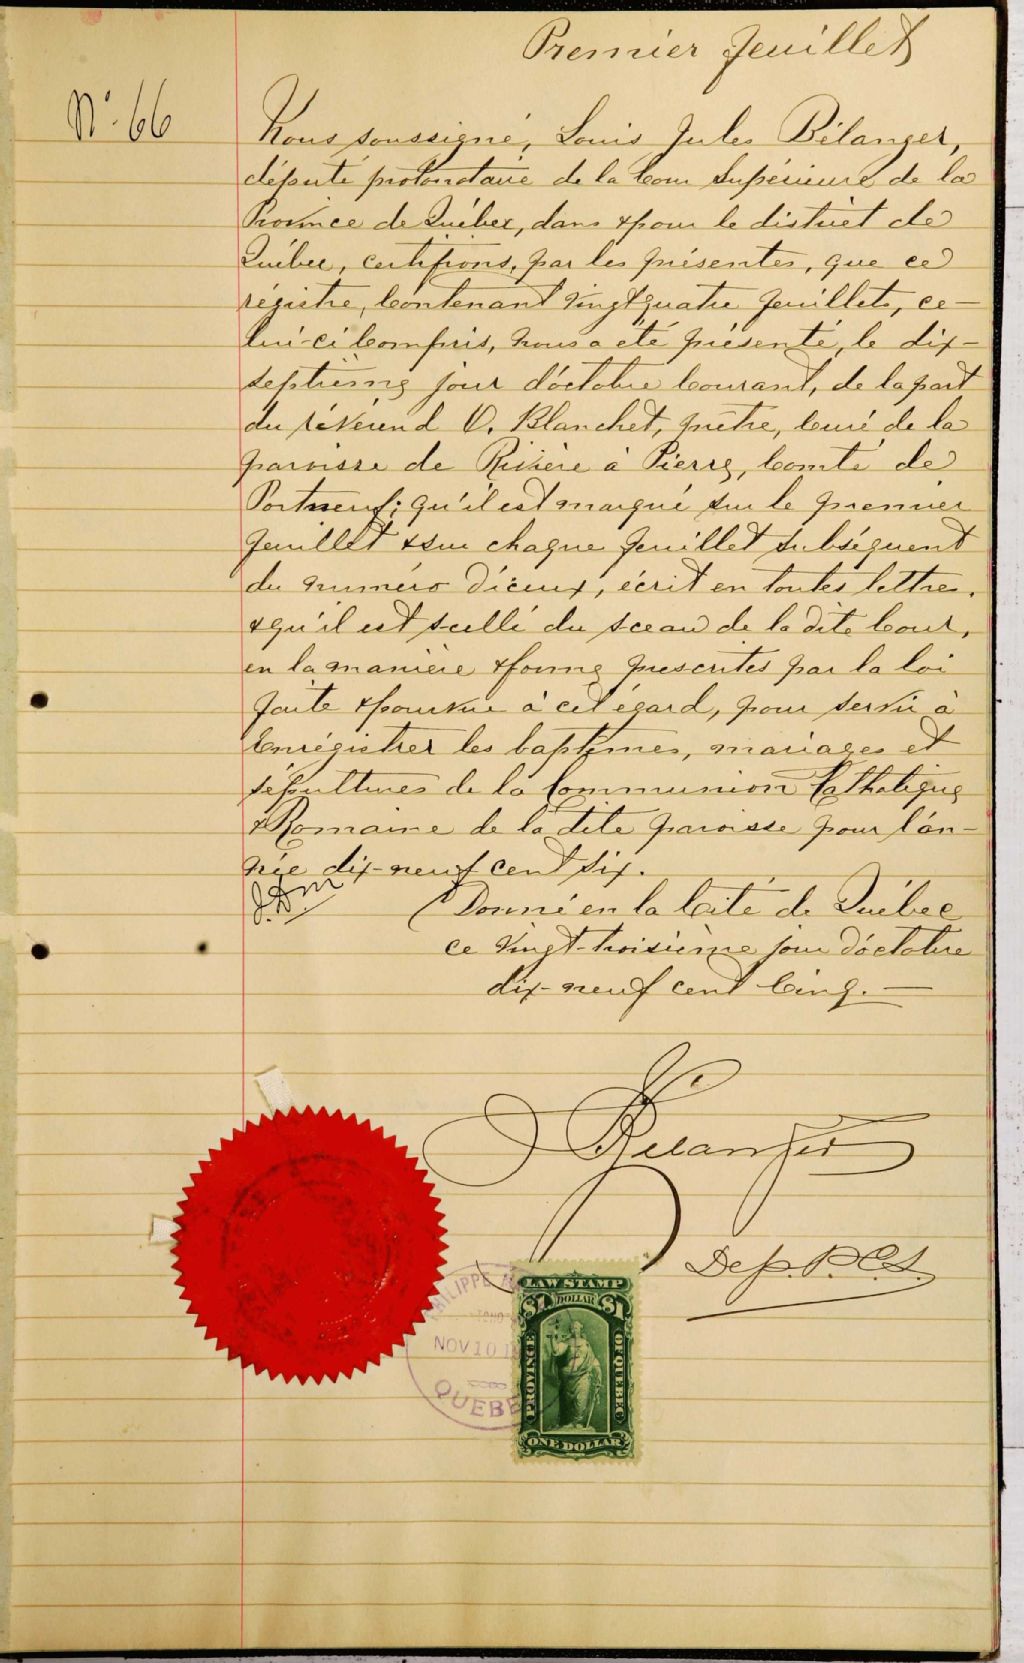 Premier feuillet
No. 66
Nous soussigné, Louis Jules Bélanger,
député protonotaire de la Cour Supérieure de la
Province de Québec, dans & pour le district de
Québec, certifions, par les présentes, que ce
régistre, contenant vingt quatre feuillets, ce-
lui-ci compris, nous a été présenté, le dix-
septième jour d'octobre courant, de la part
du révérend O. Blanchet, prêtre, curé de la
paroisse de Rivière à Pierre, Comté de
Portneuf; qu'il est marqué sur le premier
feuillet & sur chaque feuillet subséquent
du numéro d'iceux, écrit en toutes lettres,
& qu'il est scellé du sceau de la dite Cour,
en la manière & forme prescrites par la loi
faite & pourvue à cet égard, pour servir à
enrégistrer les baptêmes, mariages et
sépultures de la Communion Catholique
& Romaine de la dite paroisse pour l'an-
née dix-neuf cent six.
Donné en la Cité de Québec
ce vingt-troisième jour d'octobre
dix-neuf cent cinq. —
Bélanger
Dep. P.C.S.
PHILIPPE
NOV 10 1
QUEBE
LAW STAMP
$1 DOLLAR $1
PROVINCE OF QUEBEC
ONE DOLLAR